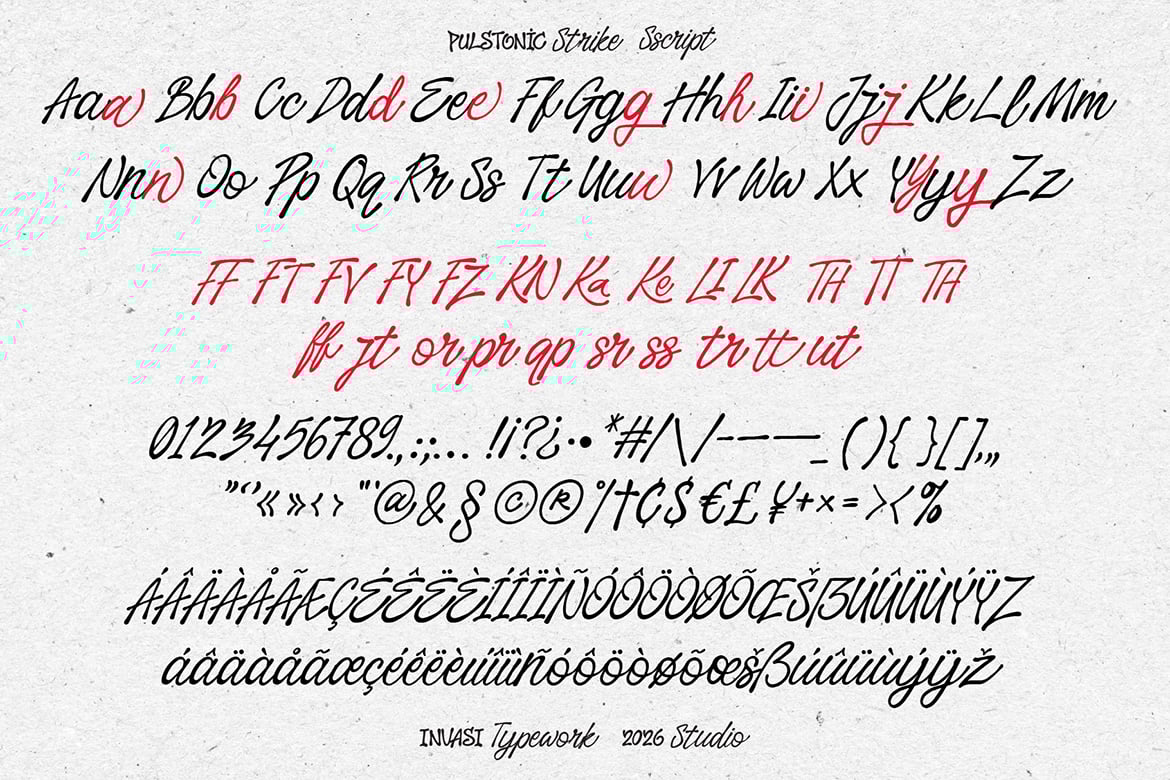 PULSTONIC Strike Sscript
Aaa Bbb Cc Ddd Eee Ff Ggg Hhh Iii Jjj Kk Ll Mm
Nnn Oo Pp Qq Rr Ss Tt Uuu Vv Ww Xx YYyy Zz
FF FT FV FY FZ KN Ka Ke LI LK TH TT TH
ff jt or pr qp sr ss tr tt ut
0123456789.,:;... !¡?¿·• *#/\ /-–—_ (){ }[],„
”‘’«»‹› "'@&§©®°|†¢$€£¥+×=><%
ÁÂÄÀÅÃÆÇÉÊËÈÍÎÏÌÑÓÔÖÒØÕŒŠẞÚÛÜÙÝŸŽ
áâäàåãæçéêëèíîïìñóôöòøõœšßúûüùýÿž
INVASI Typework 2026 Studio